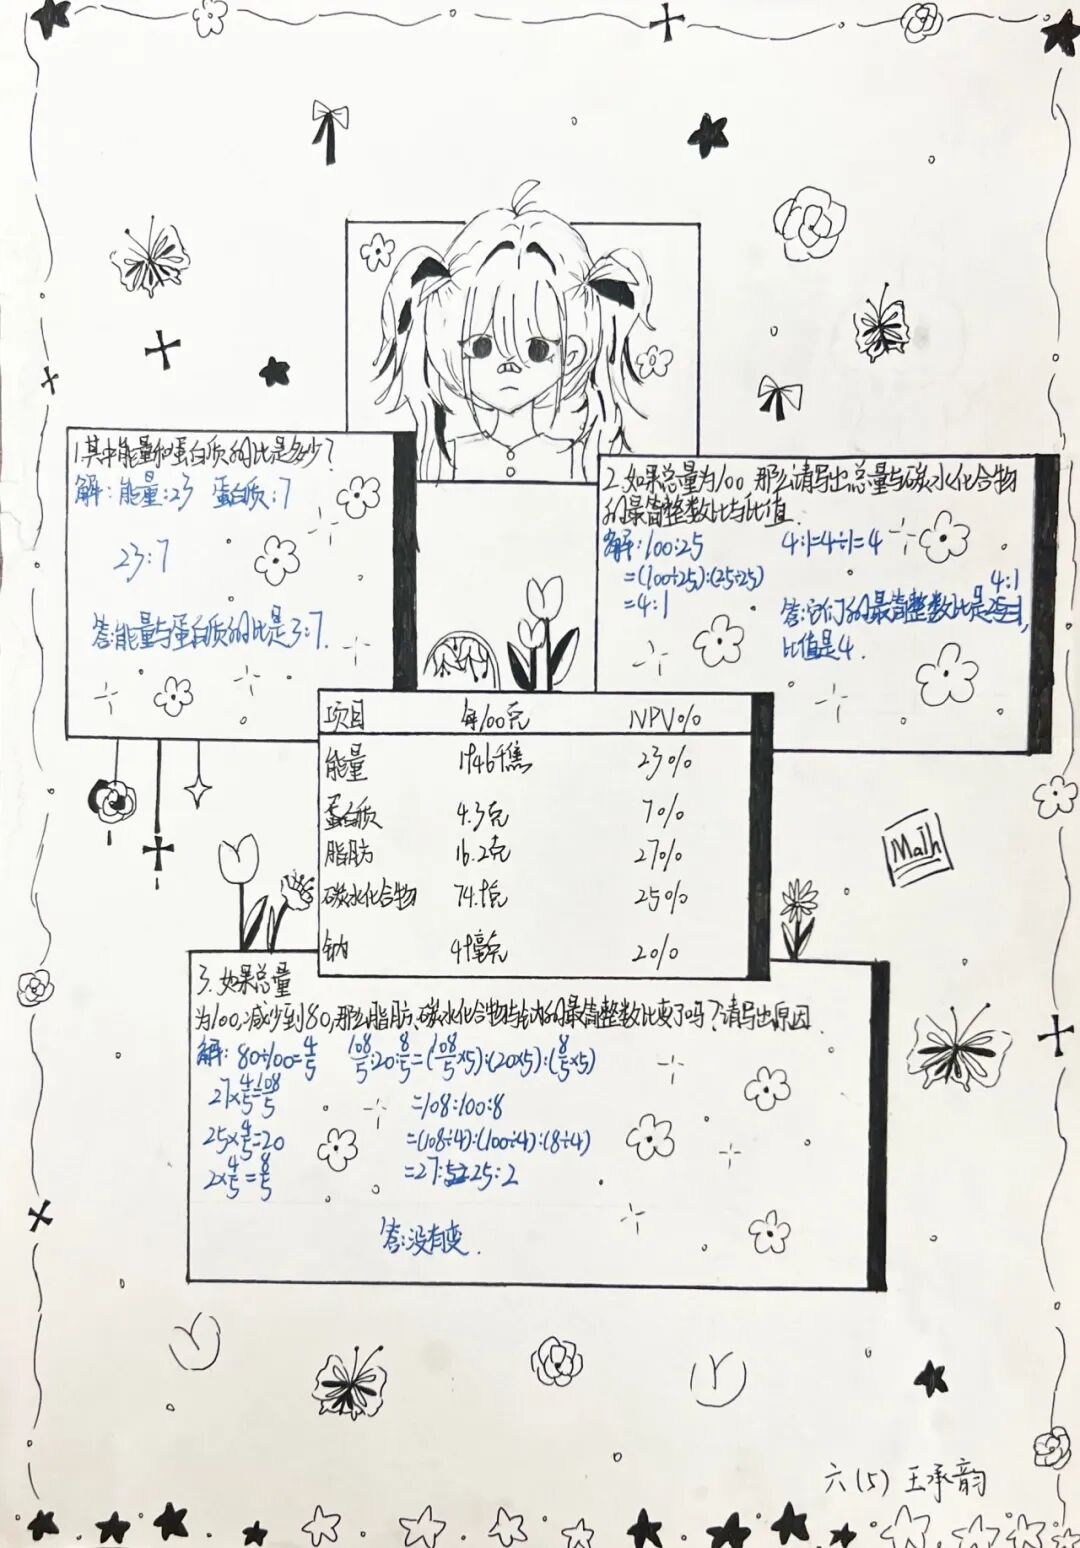 1.其中能量和蛋白质的比是多少?
解:能量:23 蛋白质:7
23:7
答:能量与蛋白质的比是3:7.
2.如果总量为100,那么请写出总量与碳水化合物
的最简整数比与比值.
解:100:25
=(100÷25):(25÷25)
=4:1
4:1=4÷1=4
4:1
答:它们的最简整数比是
比值是4.
项目 每100克 NPV%
能量 1946千焦 23%
蛋白质 4.3克 7%
脂肪 16.2克 27%
碳水化合物 74.9克 25%
钠 49毫克 2%
Math
3.如果总量
为100,减少到80,那么脂肪、碳水化合物与钠的最简整数比变了吗?请写出原因.
解:80÷100=4/5
27×4/5=108/5
25×4/5=20
2×4/5=8/5
108/5:20:8/5=(108/5×5):(20×5):(8/5×5)
=108:100:8
=(108÷4):(100÷4):(8÷4)
=27:25:2
答:没有变.
六(5) 王承韵